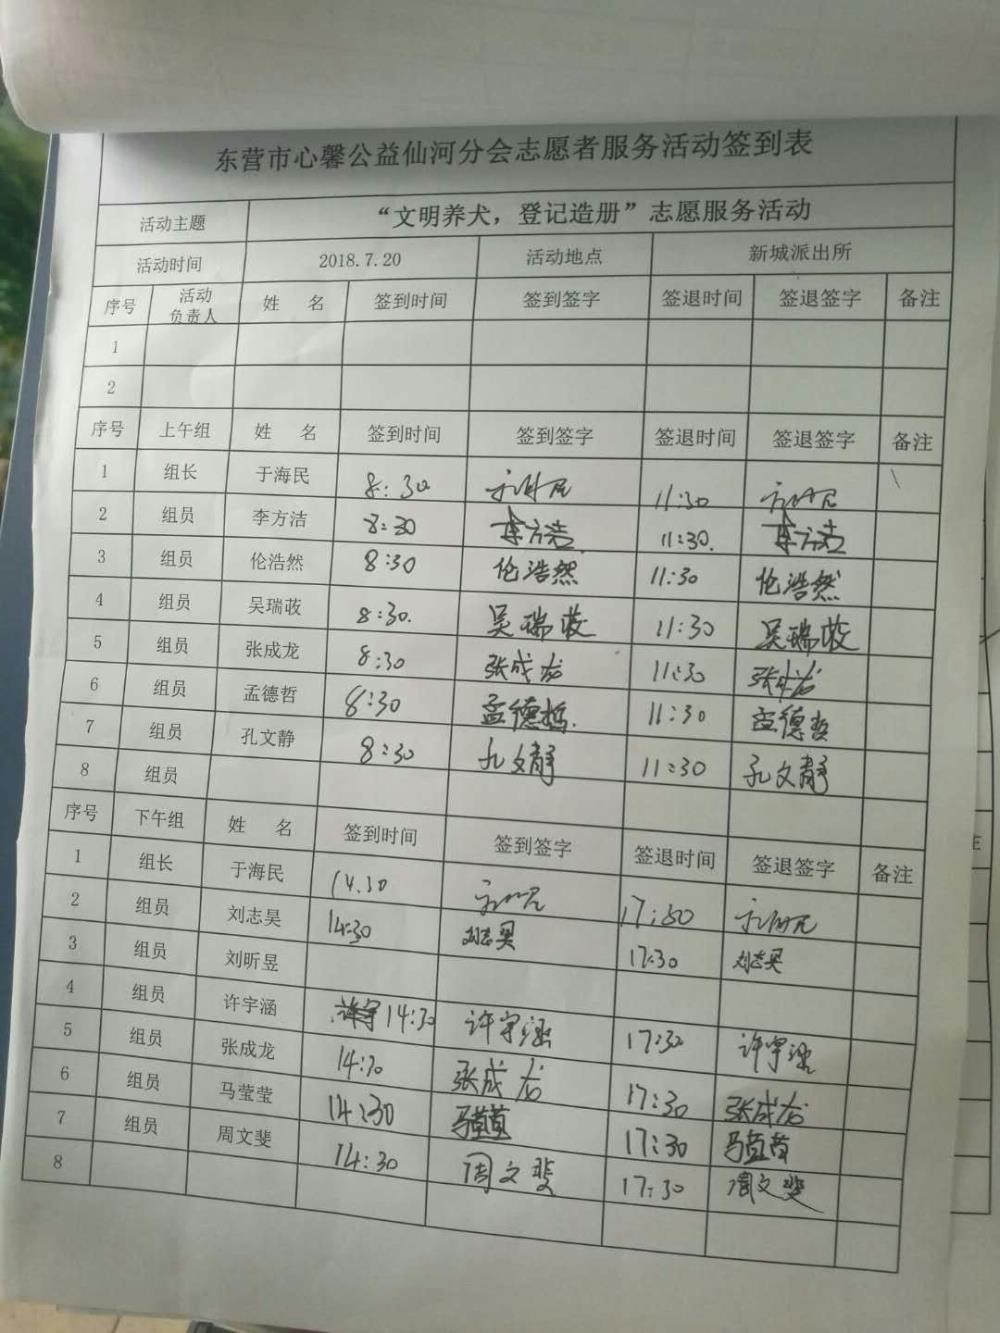 东营市心馨公益仙河分会志愿者服务活动签到表
活动主题 “文明养犬，登记造册”志愿服务活动
活动时间 2018.7.20 活动地点 新城派出所
序号 活动负责人 姓 名 签到时间 签到签字 签退时间 签退签字 备注
1
2
序号 上午组 姓 名 签到时间 签到签字 签退时间 签退签字 备注
1 组长 于海民 8:30 于海民 11:30 于海民
2 组员 李方洁 8:30 李方洁 11:30. 李方洁
3 组员 伦浩然 8:30 伦浩然 11:30 伦浩然
4 组员 吴瑞荍 8:30. 吴瑞荍 11:30 吴瑞荍
5 组员 张成龙 8:30 张成龙 11:30 张成龙
6 组员 孟德哲 8:30 孟德哲. 11:30 孟德哲
7 组员 孔文静 8:30 孔文静 11:30 孔文静
8 组员
序号 下午组 姓 名 签到时间 签到签字 签退时间 签退签字 备注
1 组长 于海民 14.30 于海民 17:30 于海民
2 组员 刘志昊 14:30 刘志昊 17:30 刘志昊
3 组员 刘昕昱
4 组员 许宇涵 14:30 许宇涵 17:30 许宇涵
5 组员 张成龙 14:30 张成龙 17:30 张成龙
6 组员 马莹莹 14:30 马莹莹 17:30 马莹莹
7 组员 周文斐 14:30 周文斐 17:30 周文斐
8